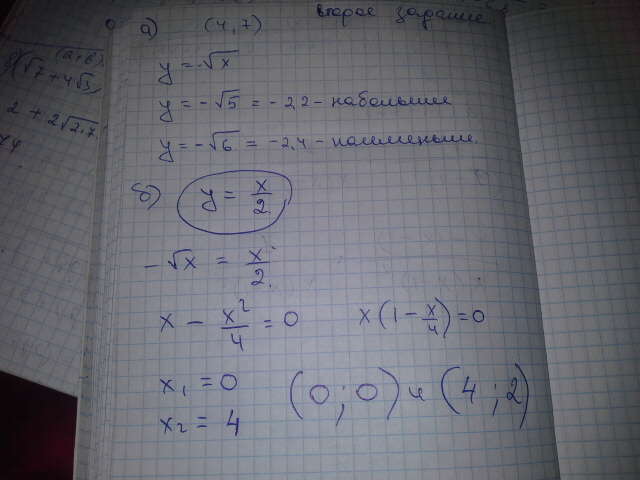 второе задание
а) (4,7)
y = -√x
y = -√5 = -2,2 - наболшие
y = -√6 = -2,4 - наименьшие.
б) y = x/2
-√x = x/2
x - x²/4 = 0 x(1 - x/4) = 0
x₁ = 0
x₂ = 4
(0 ; 0) и (4 ; 2)
(√7 + 4√3)
2 + 2√2,7